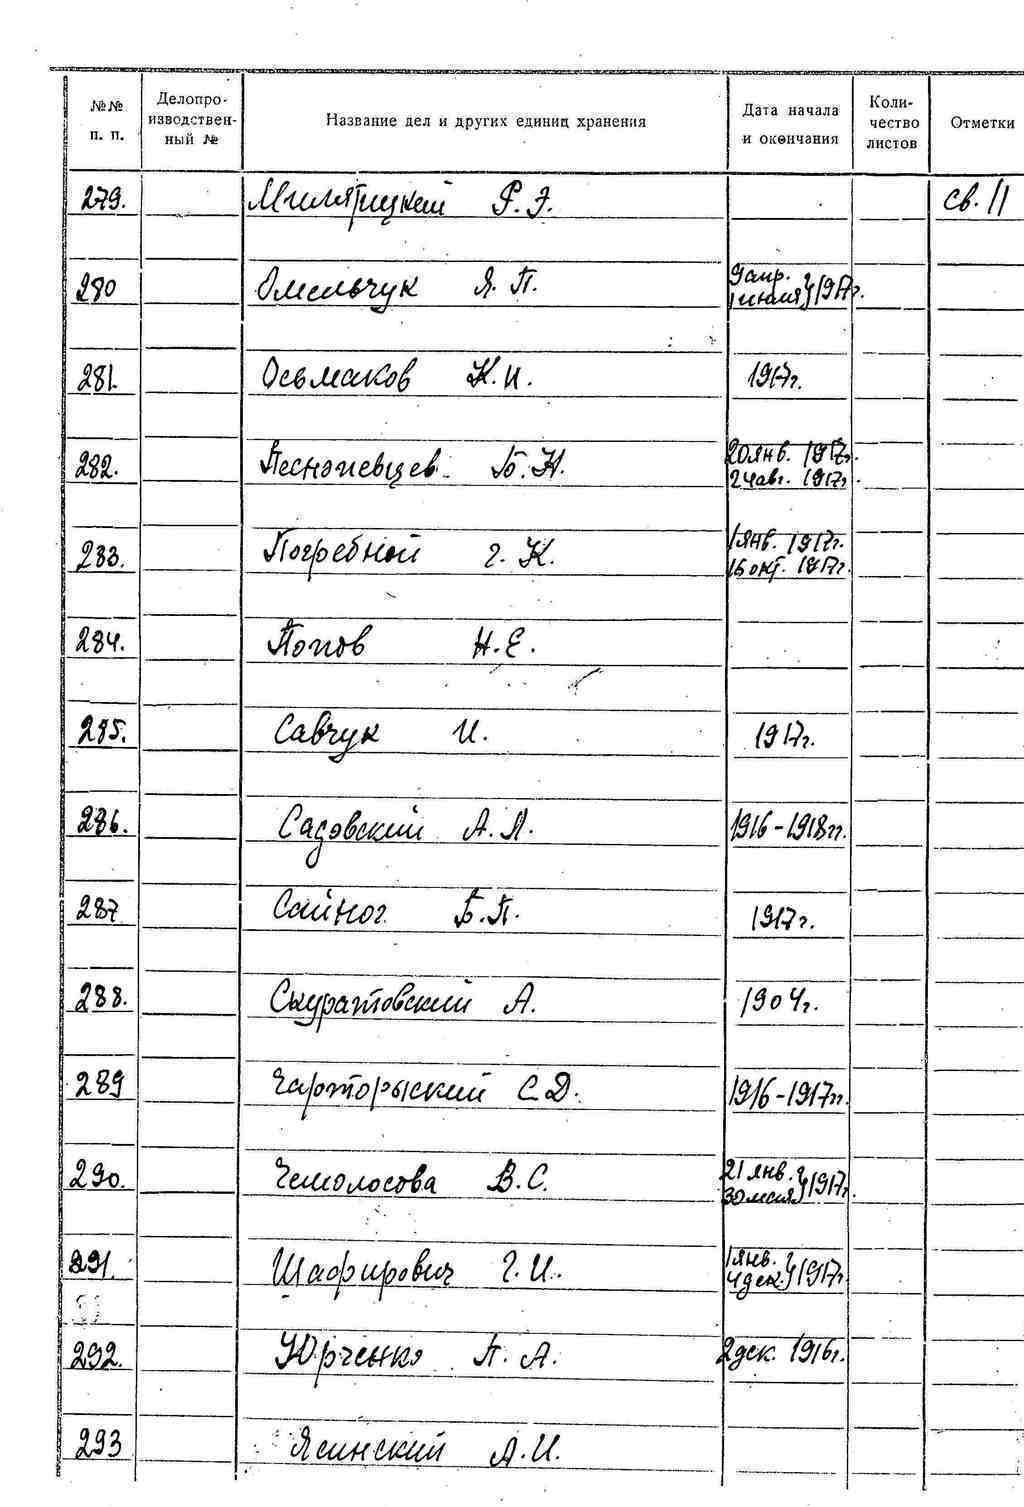 №№ п. п. Делопроизводственный № Название дел и других единиц хранения Дата начала и окончания Количество листов Отметки
279. Милятицкий Р. Э. св. 11
280 Омельчук Я. П. 9 апр. 1 июля 1917г.
281. Осьмаков К. И. 1917г.
282. Песнопевцев Б. Н. 20 янв. 1917г. 24 авг. 1917г.
283. Погребной Г. К. 1 янв. 1917г. 16 окт. 1917г.
284. Попов Н. Е.
285. Савчук И. 1917г.
286. Садовский А. Л. 1916-1918гг.
287 Сайног Б. П. 1917г.
288. Скуратовский А. 1904г.
289 Чарторыский С. Д. 1916-1917гг.
290. Чемолосова В. С. 21 янв. 30 июля 1917г.
291. Шафирович Г. И. 1 янв. 4 дек. 1917г.
292. Юрченко П. А. 2 дек. 1916г.
293 Ясинский А. И.